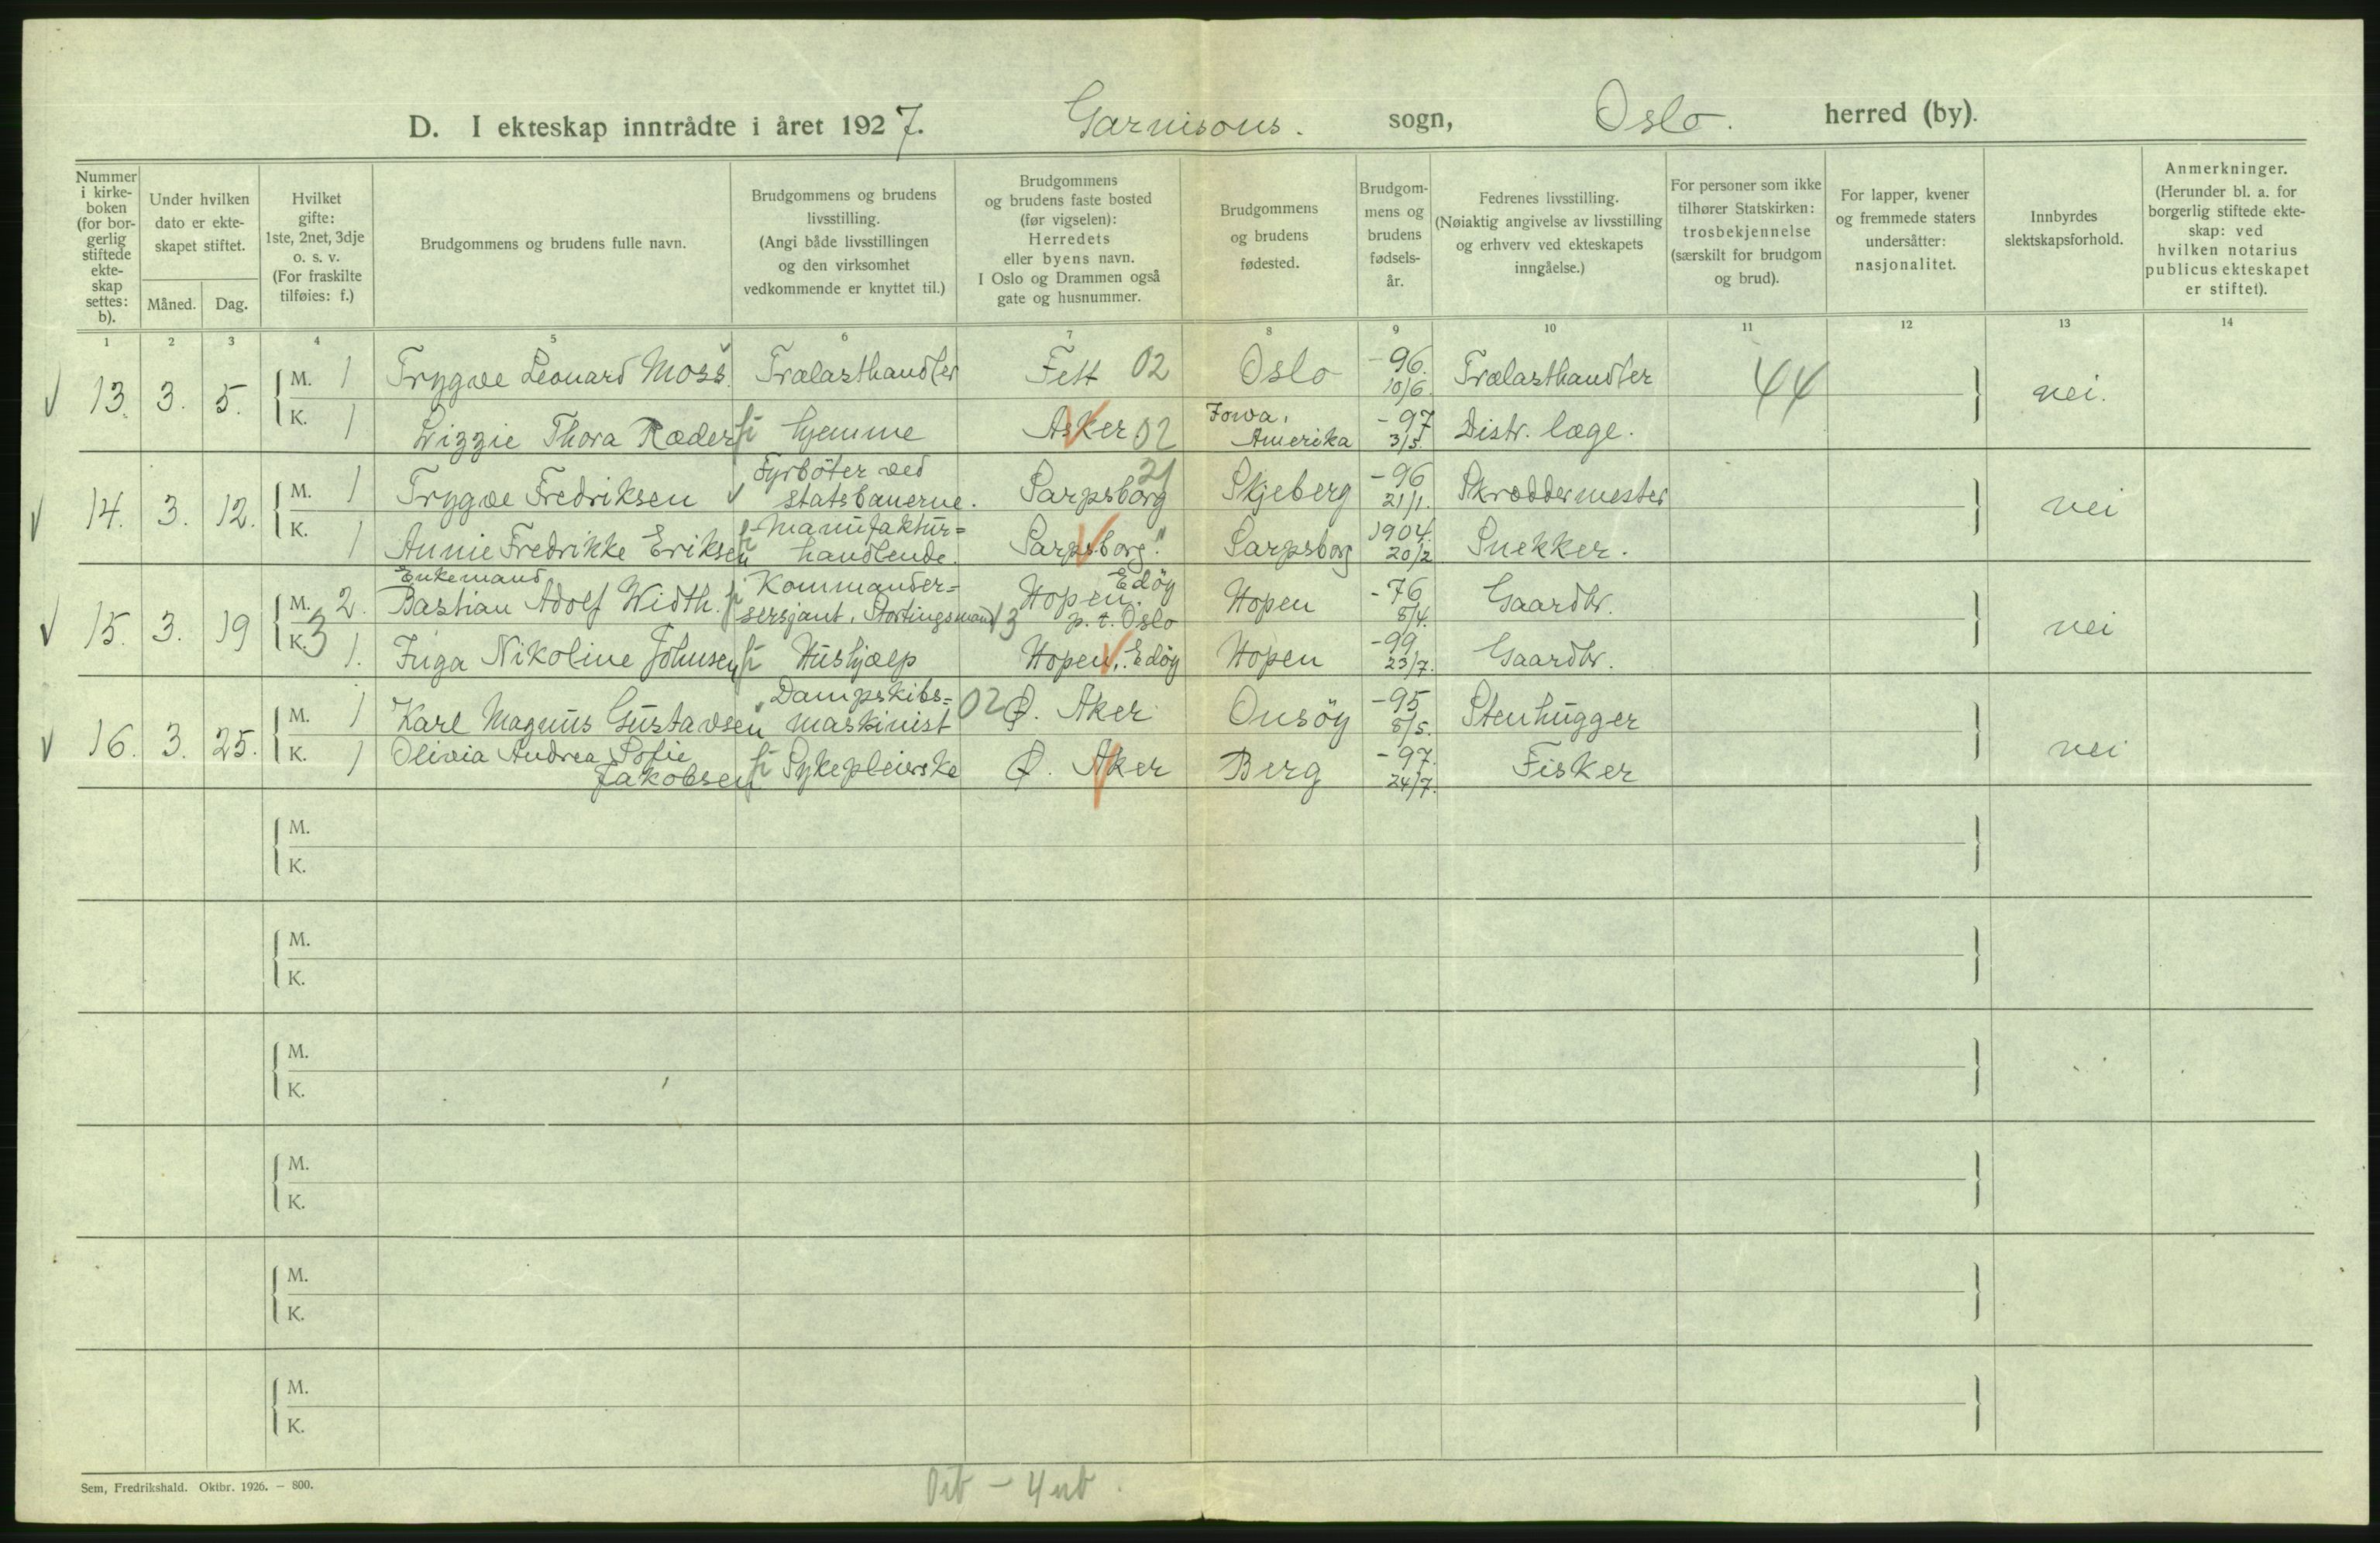 D. I ekteskap inntrådte i året 1927. Garnisons. sogn, Oslo. herred (by).
Nummer i kirke-boken (for bor-gerlig stiftede ekte-skap settes: b).
Under hvilken dato er ekte-skapet stiftet.
Måned. Dag.
Hvilket gifte: 1ste, 2net, 3dje o. s. v. (For fraskilte tilføies: f.)
Brudgommens og brudens fulle navn.
Brudgommens og brudens livsstilling. (Angi både livsstillingen og den virksomhet vedkommende er knyttet til.)
Brudgommens og brudens faste bosted (før vigselen): Herredets eller byens navn. I Oslo og Drammen også gate og husnummer.
Brudgommens og brudens fødested.
Brudgom-mens og brudens fødsels-år.
Fedrenes livsstilling. (Nøiaktig angivelse av livsstilling og erhverv ved ekteskapets inngåelse.)
For personer som ikke tilhører Statskirken: trosbekjennelse (særskilt for brudgom og brud).
For lapper, kvener og fremmede staters undersåtter: nasjonalitet.
Innbyrdes slektskapsforhold.
Anmerkninger. (Herunder bl. a. for borgerlig stiftede ekte-skap: ved hvilken notarius publicus ekteskapet er stiftet).
1 2 3 4 5 6 7 8 9 10 11 12 13 14
13. 3. 5. M. 1 Trygve Leonard Moss. Trælasthandler Fett 02 Oslo -96. 10/6. Trælasthandler 44 nei.
K. 1 Lizzie Thora Ræder hjemme Asker 02 Iowa, Amerika -97 3/5. Distr. læge.
14. 3. 12. M. 1 Trygve Fredriksen Fyrbøter ved statsbanerne. Sarpsborg 21 Skjeberg -96 21/1. Skreddermester nei
K. 1 Annie Fredrikke Eriksen Manufaktur= handlende. Sarpsborg " Sarpsborg 1904. 20/2 Snekker.
15. 3. 19 M. 2. Enkemand Bastian Adolf Width. Kommander= sersjant, Stortingsmand 13 Hopen. Edöy p. t. Oslo Hopen -76 8/4. Gaardbr. nei
K. 3 1. Inga Nikoline Johnsen Hushjælp Hopen, Edöy Hopen -99 23/7. Gaardbr.
16. 3. 25. M. 1 Karl Magnus Gustavsen Dampskibs= maskinist 02 Ø. Aker Onsöy -95 8/5. Stenhugger nei
K. 1 Olivia Andrea Sofie Jakobsen Sykepleierske Ø. Aker Berg -97. 24/7. Fisker
M.
K.
M.
K.
M.
K.
M.
K.
M.
K.
M.
K.
Sem, Fredrikshald. Oktbr. 1926. — 800.